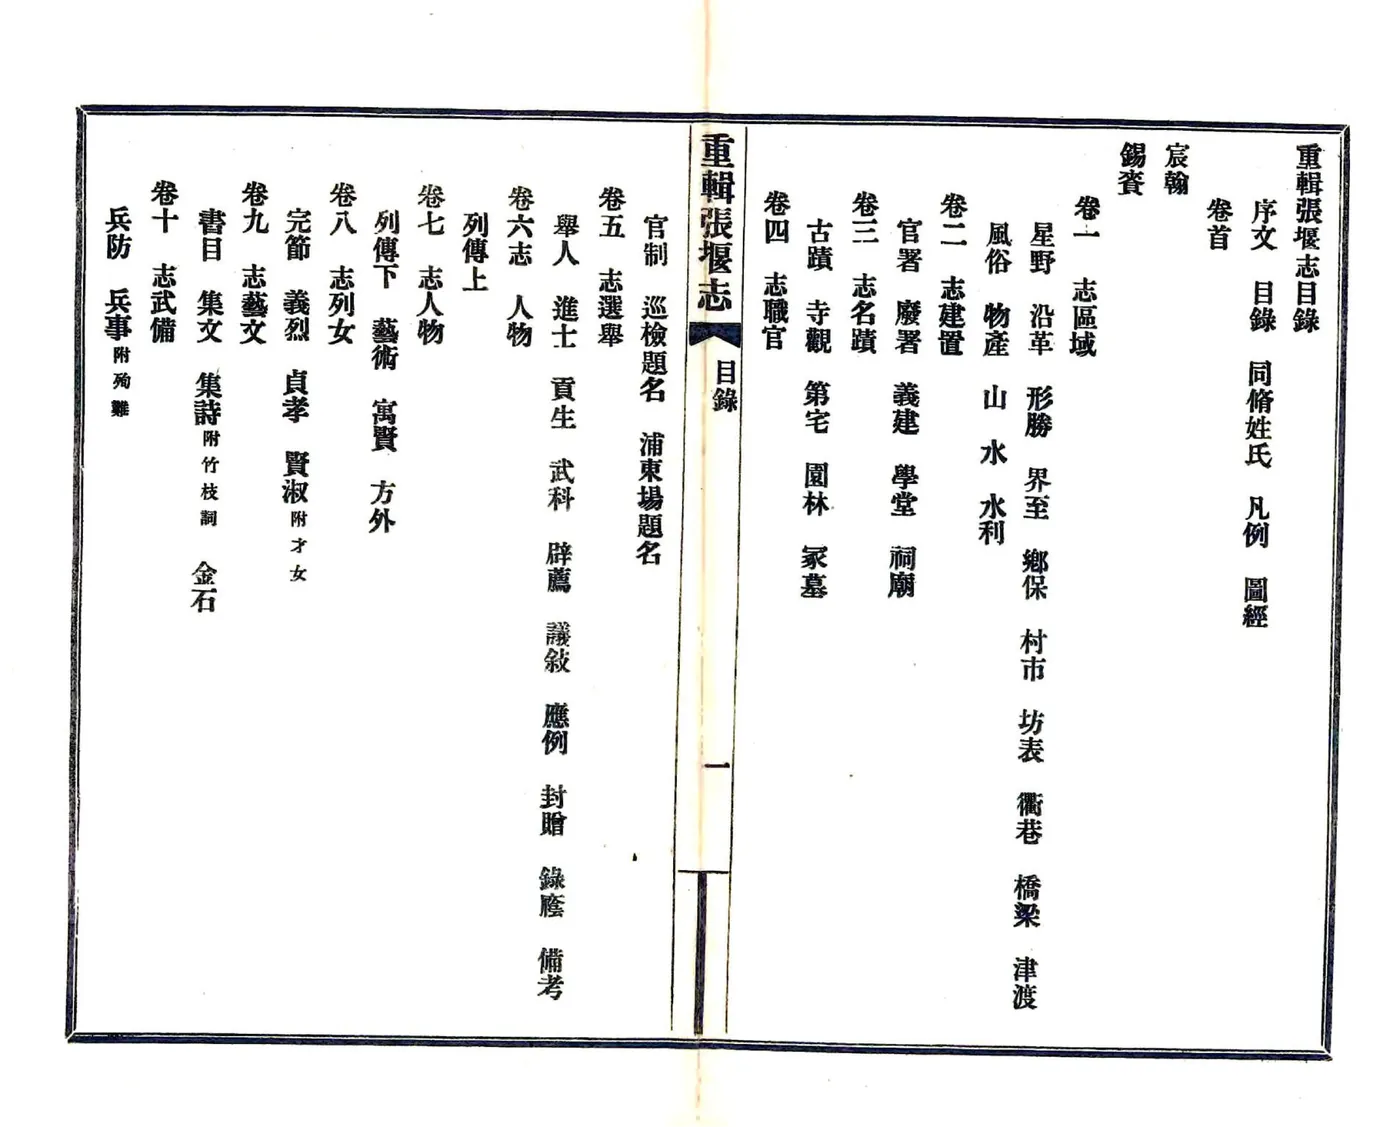 重輯張堰志目錄
序文　目錄　同脩姓氏　凡例　圖經
卷首
宸翰
錫賚
卷一　志區域
星野　沿革　形勝　界至　鄉保　村市　坊表　衢巷　橋梁　津渡
風俗　物產　山　水　水利
卷二　志建置
官署　廢署　義建　學堂　祠廟
卷三　志名蹟
古蹟　寺觀　第宅　園林　冢墓
卷四　志職官
重輯張堰志　目錄　一
官制　巡檢題名　浦東場題名
卷五　志選舉
舉人　進士　貢生　武科　辟薦　議敍　應例　封贈　錄廕　備考
卷六志　人物
列傳上
卷七　志人物
列傳下　藝術　寓賢　方外
卷八　志列女
完節　義烈　貞孝　賢淑附才女
卷九　志藝文
書目　集文　集詩附竹枝詞　金石
卷十　志武備
兵防　兵事附殉難